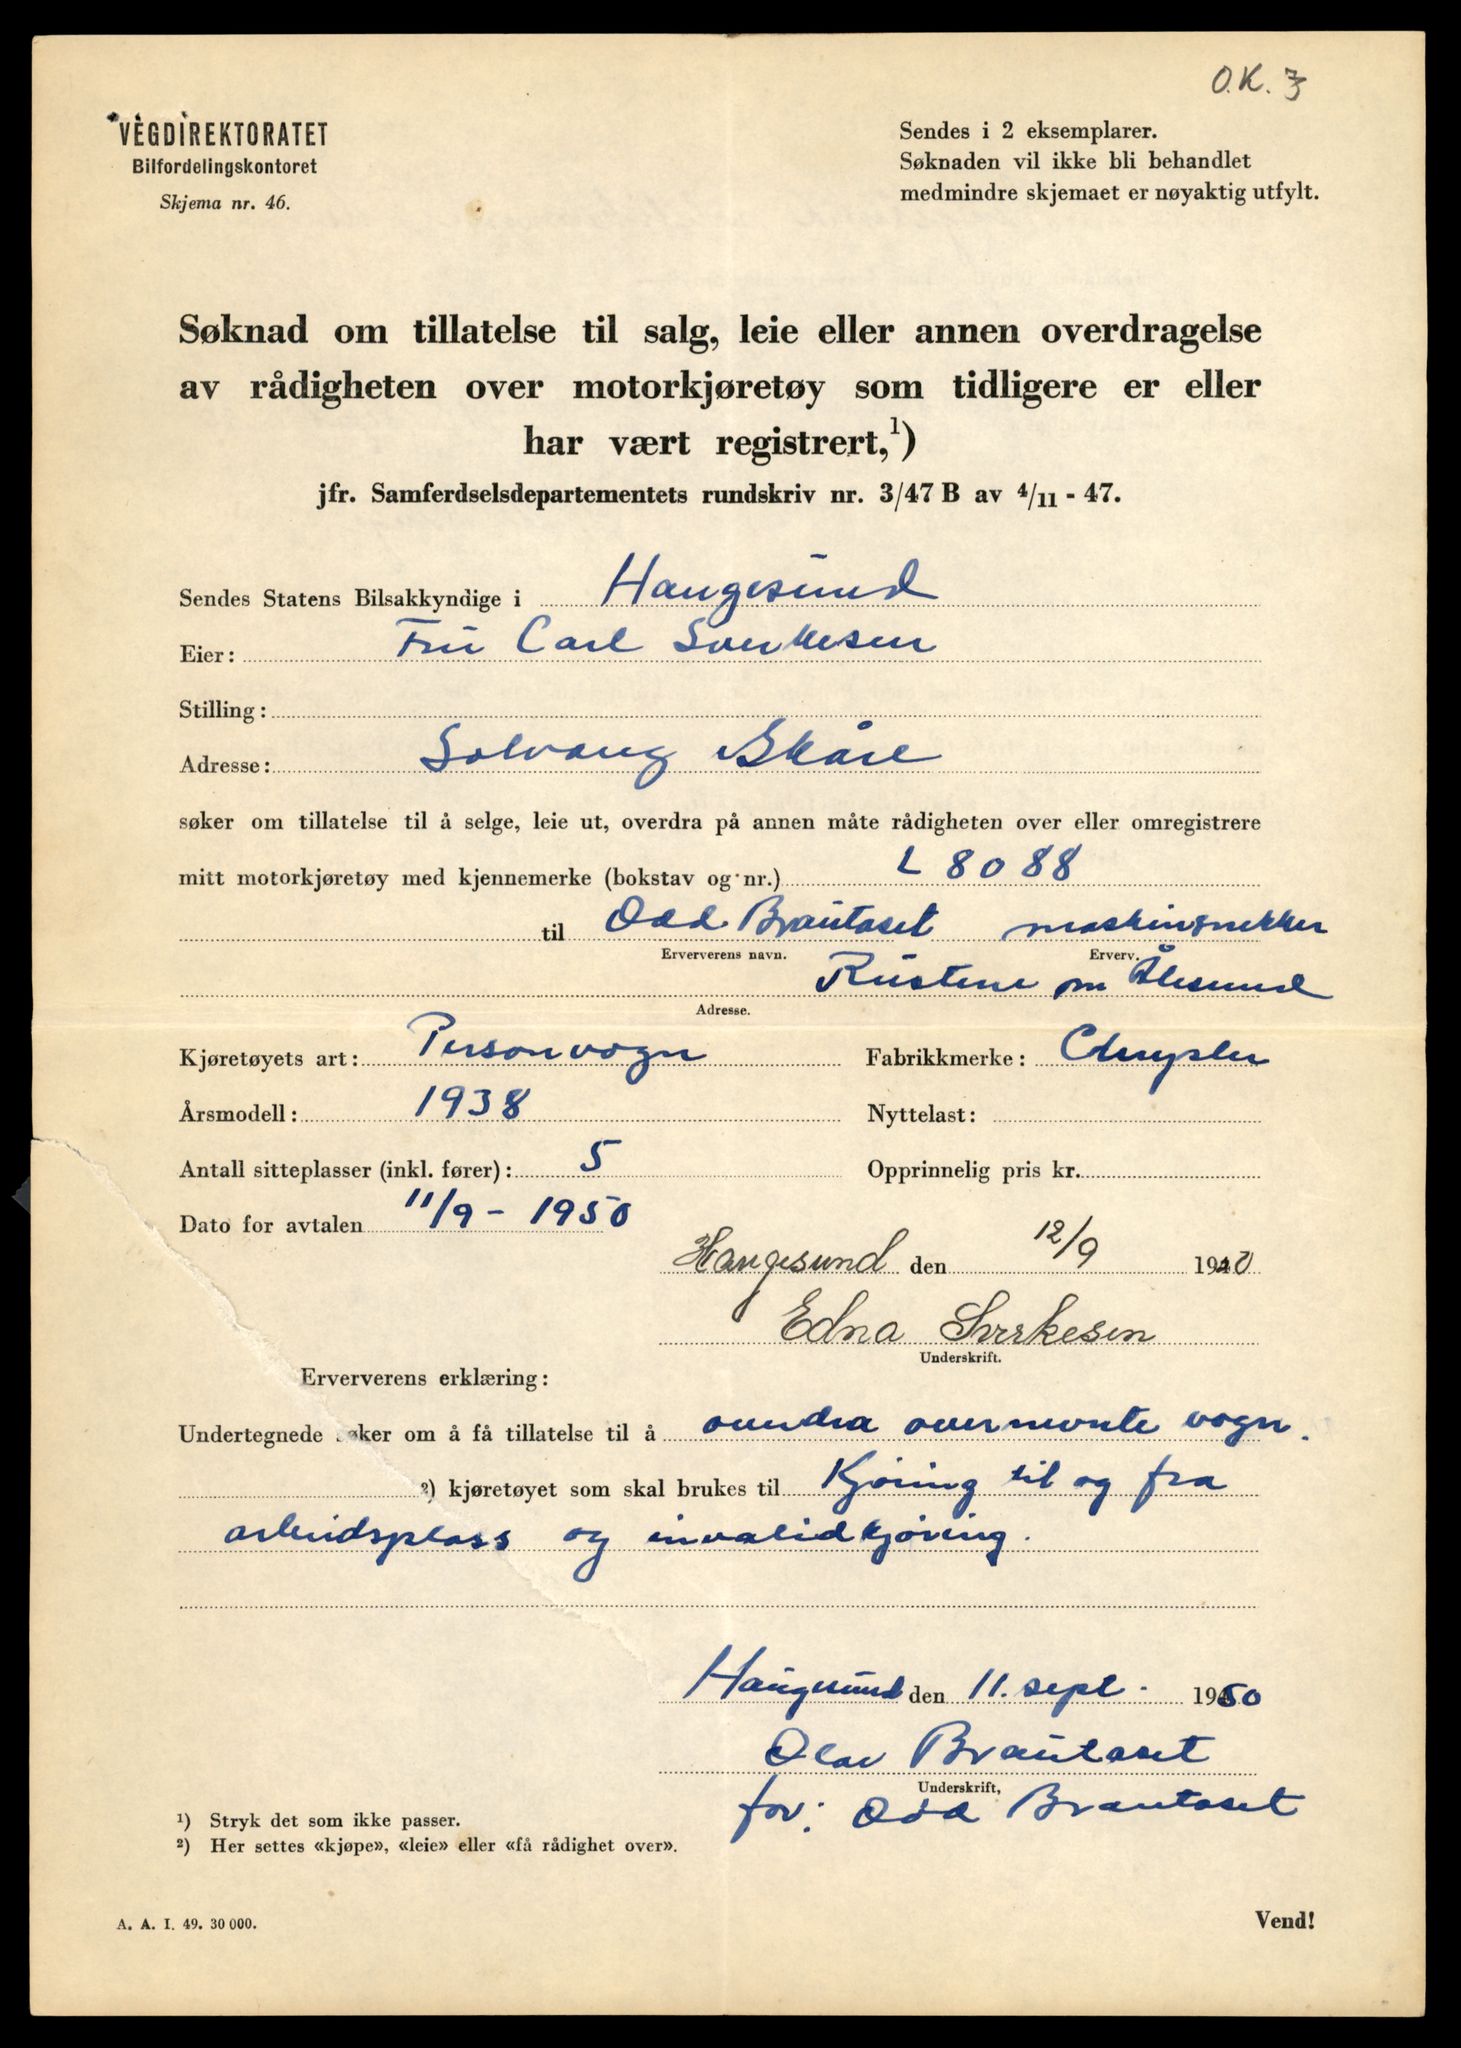 O.K.
VEGDIREKTORATET
Bilfordelingskontoret
Skjema nr. 46.
Sendes i 2 eksemplarer.
Søknaden vil ikke bli behandlet
medmindre skjemaet er nøyaktig utfylt.
Søknad om tillatelse til salg, leie eller annen overdragelse
av rådigheten over motorkjøretøy som tidligere er eller
har vært registrert,¹)
jfr. Samferdselsdepartementets rundskriv nr. 3/47 B av 4/11 - 47.
Sendes Statens Bilsakkyndige i Haugesund
Eier: Fru Carl Sverkesen
Stilling:
Adresse: Solvang Skåre
søker om tillatelse til å selge, leie ut, overdra på annen måte rådigheten over eller omregistrere
mitt motorkjøretøy med kjennemerke (bokstav og nr.) L 8088
til Odd Brautaset maskinsnekker
Erververens navn. Erverv.
Rustene pr Ålesund
Adresse.
Kjøretøyets art: Personvogn Fabrikkmerke: Chrysler
Årsmodell: 1938 Nyttelast:
Antall sitteplasser (inkl. fører): 5 Opprinnelig pris kr.
Dato for avtalen 11/9 - 1950
Haugesund den 12/9 19
Edna Sverkesen
Underskrift.
Erververens erklæring:
Undertegnede søker om å få tillatelse til å overdra overnevnte vogn.
²) kjøretøyet som skal brukes til Kjøring til og fra
arbeidsplass og invalidkjøring.
Haugesund den 11. sept. 1950
Olav Brautaset
Underskrift,
for: Odd Brautaset
¹) Stryk det som ikke passer.
²) Her settes «kjøpe», «leie» eller «få rådighet over».
A. A. I. 49. 30 000.
Vend!